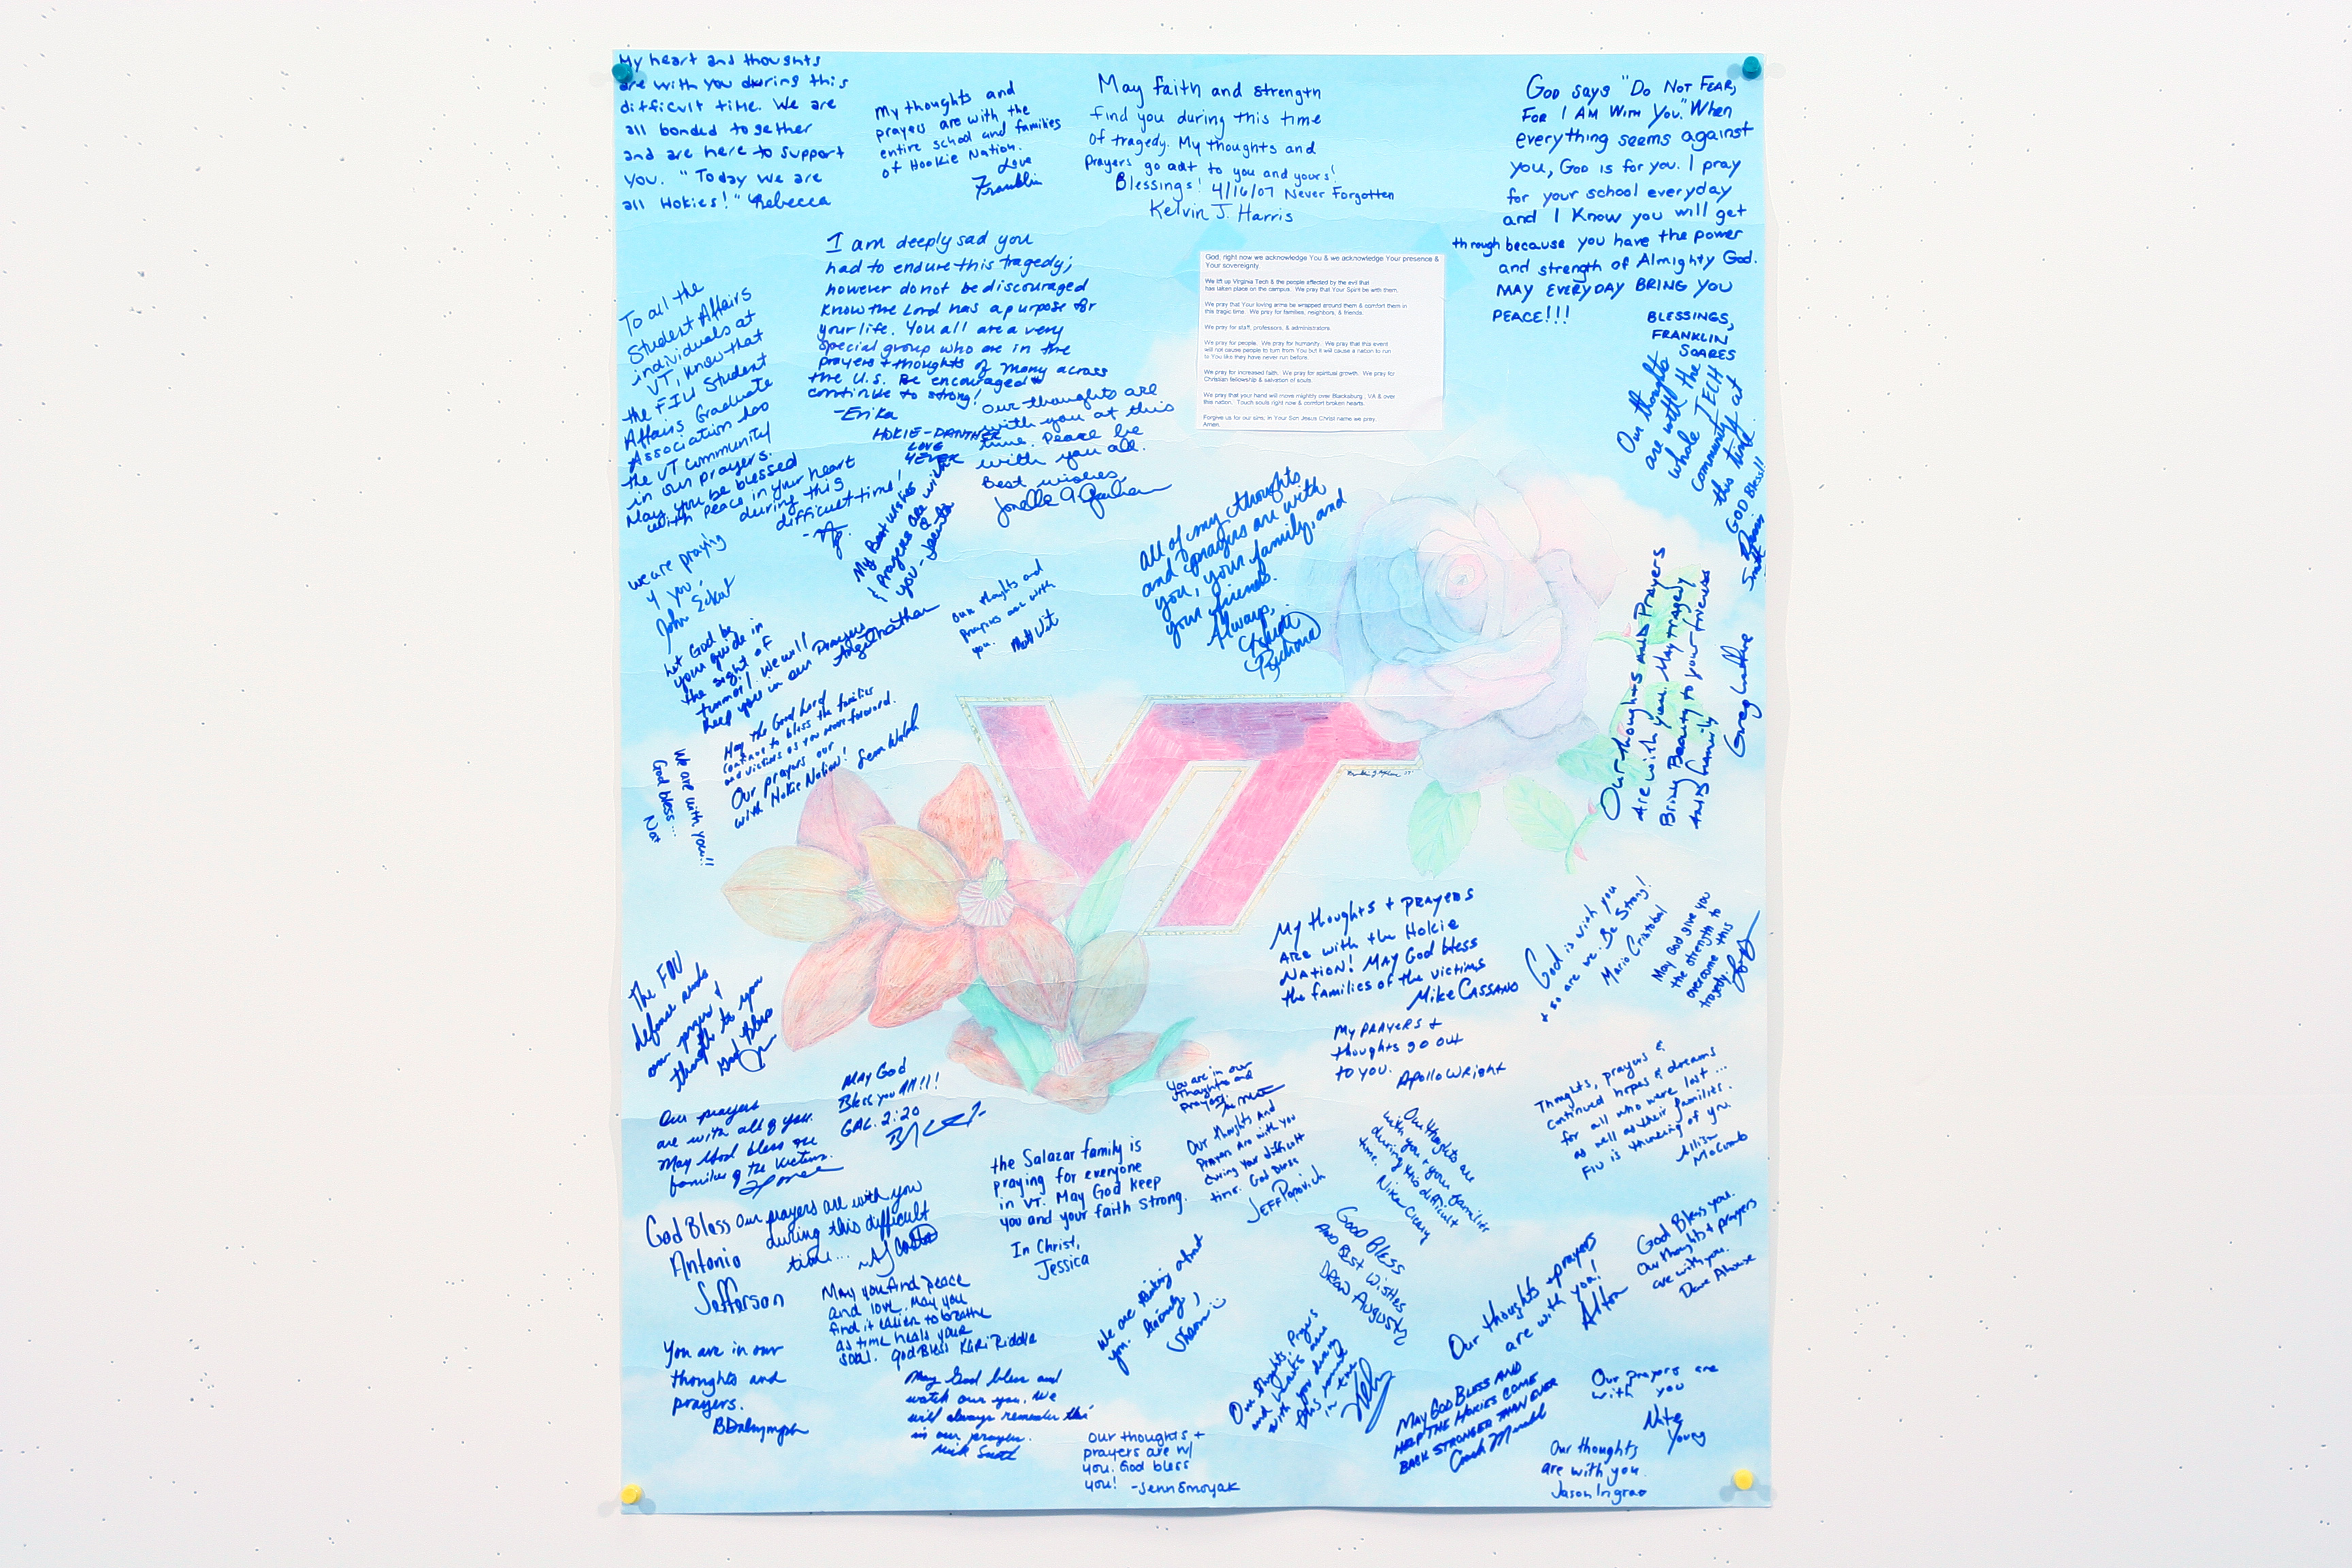 My heart and thoughts
are with you during this
difficult time. We are
all bonded together
and are here to support
you. "Today we are
all Hokies!" Rebecca
My thoughts and
prayers are with the
entire school and families
of Hookie Nation.
Love
Franklin
May faith and strength
find you during this time
of tragedy. My thoughts and
Prayers go out to you and yours!
Blessings! 4/16/07 Never Forgotten
Kelvin J. Harris
God says "Do Not Fear,
For I Am With You." When
everything seems against
you, God is for you. I pray
for your school everyday
and I Know you will get
through because you have the power
and strength of Almighty God.
May everyday bring you
peace!!!
Blessings,
Franklin
Soares
I am deeply sad you
had to endure this tragedy;
however do not be discouraged
Know the Lord has a purpose for
your life. You all are a very
special group who are in the
prayers + thoughts of many across
the U.S. Be encouraged +
continue to strong!
-Erika
God, right now we acknowledge You & we acknowledge Your presence &
Your sovereignty
We lift up Virginia Tech & the people affected by the evil that
has taken place on the campus. We pray that Your Spirit be with them.
We pray that Your loving arms be wrapped around them & comfort them in
this tragic time. We pray for families, neighbors, & friends.
We pray for staff, professors, & administrators.
We pray for people. We pray for humanity. We pray that this event
will not cause people to turn from You but it will cause a nation to run
to You like they have never run before.
We pray for increased faith. We pray for spiritual growth. We pray for
Christian fellowship & salvation of souls
We pray that your hand will move mightily over Blacksburg, VA & over
this nation. Touch souls right now & comfort broken hearts.
Forgive us for our sins, in Your Son Jesus Christ name we pray
Amen.
To all the
Student Affairs
individuals at
VT, know that
the FIU Student
Affairs Graduate
Association has
the VT community
in our prayers.
May you be blessed
with peace in your heart
during this
difficult time!
HOKIE-PANTHER
LOVE
4EVER
Our thoughts are
with you at this
time. Peace be
with you all.
Best wishes
Jonelle A. Graham
Our thoughts
are with the
whole TECH
community at
this time.
GOD Bless!!
My Best wishes
& Prayers are with
you -
All of my thoughts
and prayers are with
you, your family, and
your friends.
Always,
we are praying
4 you,
John
Our thoughts and
prayers are with
you.
Let God be
your guide in
the sight of
tunnel. We will
keep you in our Prayers
May the Good Lord
continue to bless the families
and victims as you move forward.
Our prayers our
with Hokie Nation! Sean Walsh
Our thoughts and Prayers
are with you. May tragedy
Bring Beauty to your friends
and family
Greg
We are with you!!
God bless...
Nat
VT
My thoughts + prayers
are with the Hokie
Nation! May God bless
the families of the victims
Mike Cassano
God is with you
+ so are we. Be Strong!
Mario Cristobal
May God give you
the strength to
overcome this
tragedy.
The
defense sends
our prayers &
thoughts to you
God Bless
My prayers +
thoughts go out
to you.
Apollo Wright
May God
Bless you All!!!
GAL. 2:20
You are in our
thoughts and
prayers.
Thoughts, prayers &
continued hopes & dreams
for all who were lost...
as well as their families.
FIU is thinking of you.
Allison
McComb
Our prayers
are with all of you.
May God bless the
families of the victims.
Our thoughts And
Prayers are with you
during your difficult
time. God Bless
Jeff Popovich
Our thoughts are
with you + your families
during this difficult
time.
Nika Cleary
the Salazar family is
praying for everyone
in VT. May God keep
you and your faith strong.
In Christ,
Jessica
God Bless
Antonio
Jefferson
Our prayers are with you
during this difficult
time...
God Bless
and Best Wishes
Drew Augustu
God Bless you.
Our thoughts & prayers
are with you.
Dave
Our thoughts + prayers
are with you!
Alton
May you find peace
and love. May you
find it easier to breathe
as time heals your
soul. God Bless Kari Riddle
We are thinking about
you.
You are in our
thoughts and
prayers.
Our thoughts, Prayers
and hearts are
with you during
this
in time
May God bless and
watch over you. We
will always remember this
in our prayer.
Nick Smith
May God Bless and
help the Hokies come
back stronger than ever
Coach
Our prayers are
with you
Nate
Young
our thoughts +
prayers are w/
you. God bless
you! -Jenn Smoyak
Our thoughts
are with you
Jason Ingrao